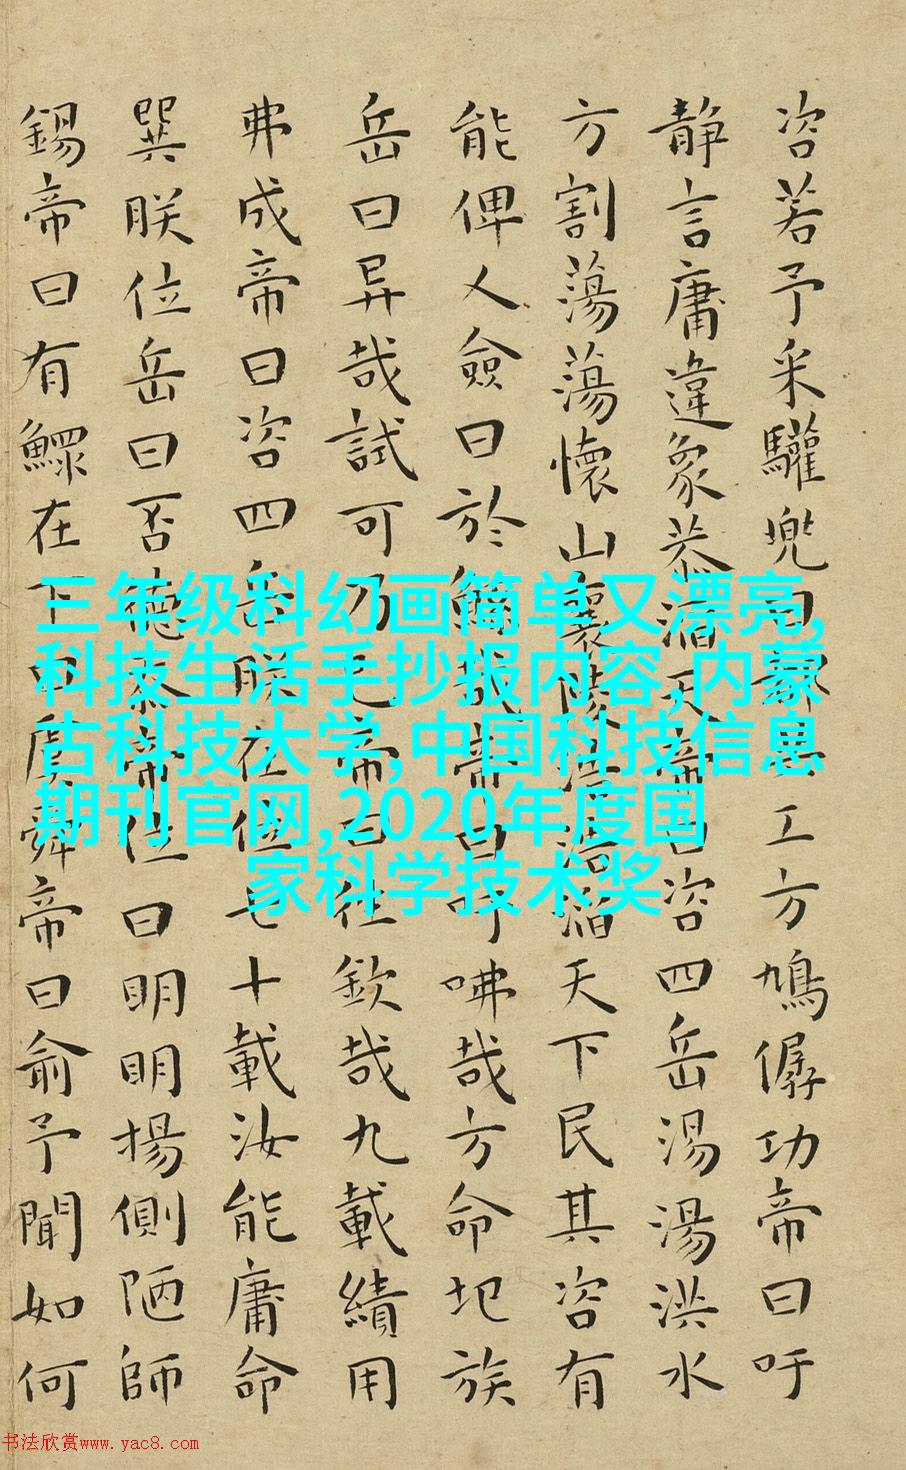 咨若予采驩兜曰都共工方鳩僝功帝曰吁
静言庸違象恭滔天帝曰咨四岳湯湯洪水
方割蕩蕩懷山襄陵浩浩滔天下民其咨有
能俾乂僉曰於鯀哉帝曰吁咈哉方命圯族
岳曰异哉試可乃已帝曰往欽哉九載績用
弗成帝曰咨四岳朕在位七十載汝能庸命
巽朕位岳曰否德忝帝位曰明明揚側陋師
錫帝曰有鰥在下曰虞舜帝曰俞予聞如何
三年级科幻画简单又漂亮,
科技生活手抄报内容,内蒙
古科技大学,中国科技信息
期刊官网,2020年度国
家科学技术奖
书法欣赏www.yac8.com